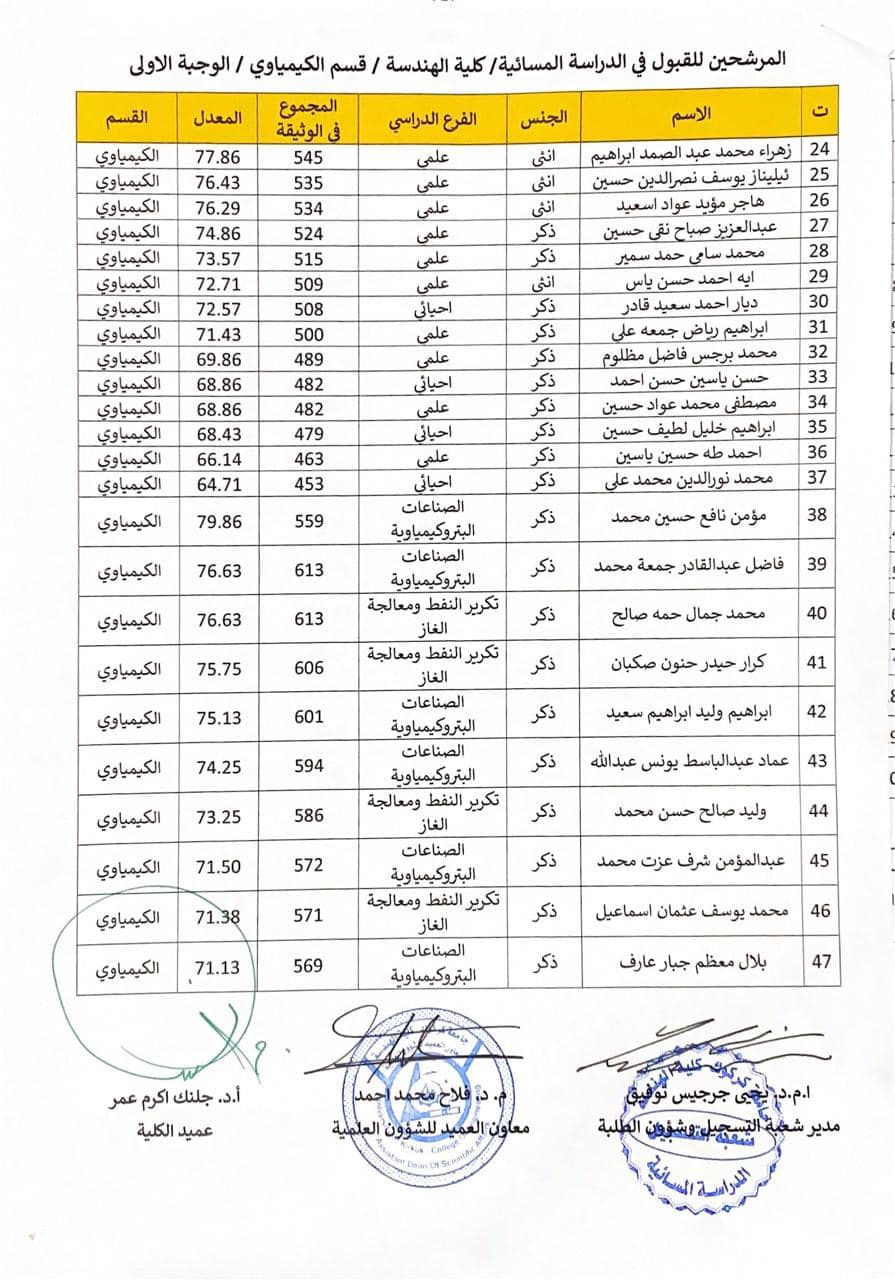 المرشحين للقبول في الدراسة المسائية/ كلية الهندسة / قسم الكيمياوي / الوجبة الاولى
ت الاسم الجنس الفرع الدراسي المجموع في الوثيقة المعدل القسم
24 زهراء محمد عبد الصمد ابراهيم انثى علمي 545 77.86 الكيمياوي
25 ئيليناز يوسف نصرالدين حسين انثى علمي 535 76.43 الكيمياوي
26 هاجر مؤيد عواد اسعيد انثى علمي 534 76.29 الكيمياوي
27 عبدالعزيز صباح نقي حسين ذكر علمي 524 74.86 الكيمياوي
28 محمد سامي حمد سمير ذكر علمي 515 73.57 الكيمياوي
29 ايه احمد حسن ياس انثى علمي 509 72.71 الكيمياوي
30 ديار احمد سعيد قادر ذكر احيائي 508 72.57 الكيمياوي
31 ابراهيم رياض جمعه علي ذكر علمي 500 71.43 الكيمياوي
32 محمد برجس فاضل مظلوم ذكر علمي 489 69.86 الكيمياوي
33 حسن ياسين حسن احمد ذكر احيائي 482 68.86 الكيمياوي
34 مصطفى محمد عواد حسين ذكر علمي 482 68.86 الكيمياوي
35 ابراهيم خليل لطيف حسين ذكر احيائي 479 68.43 الكيمياوي
36 احمد طه حسين ياسين ذكر علمي 463 66.14 الكيمياوي
37 محمد نورالدين محمد علي ذكر احيائي 453 64.71 الكيمياوي
38 مؤمن نافع حسين محمد ذكر الصناعات البتروكيمياوية 559 79.86 الكيمياوي
39 فاضل عبدالقادر جمعة محمد ذكر الصناعات البتروكيمياوية 613 76.63 الكيمياوي
40 محمد جمال حمه صالح ذكر تكرير النفط ومعالجة الغاز 613 76.63 الكيمياوي
41 كرار حيدر حنون صكبان ذكر تكرير النفط ومعالجة الغاز 606 75.75 الكيمياوي
42 ابراهيم وليد ابراهيم سعيد ذكر الصناعات البتروكيمياوية 601 75.13 الكيمياوي
43 عماد عبدالباسط يونس عبدالله ذكر الصناعات البتروكيمياوية 594 74.25 الكيمياوي
44 وليد صالح حسن محمد ذكر تكرير النفط ومعالجة الغاز 586 73.25 الكيمياوي
45 عبدالمؤمن شرف عزت محمد ذكر الصناعات البتروكيمياوية 572 71.50 الكيمياوي
46 محمد يوسف عثمان اسماعيل ذكر تكرير النفط ومعالجة الغاز 571 71.38 الكيمياوي
47 بلال معظم جبار عارف ذكر الصناعات البتروكيمياوية 569 71.13 الكيمياوي
ا.م.د. يحيى جرجيس توفيق
مدير شعبة التسجيل وشؤون الطلبة
شعبة التسجيل
الدراسة المسائية
م. د. فلاح محمد احمد
معاون العميد للشؤون العلمية
Assistant Dean Of Scientific
أ.د. جلنك اكرم عمر
عميد الكلية